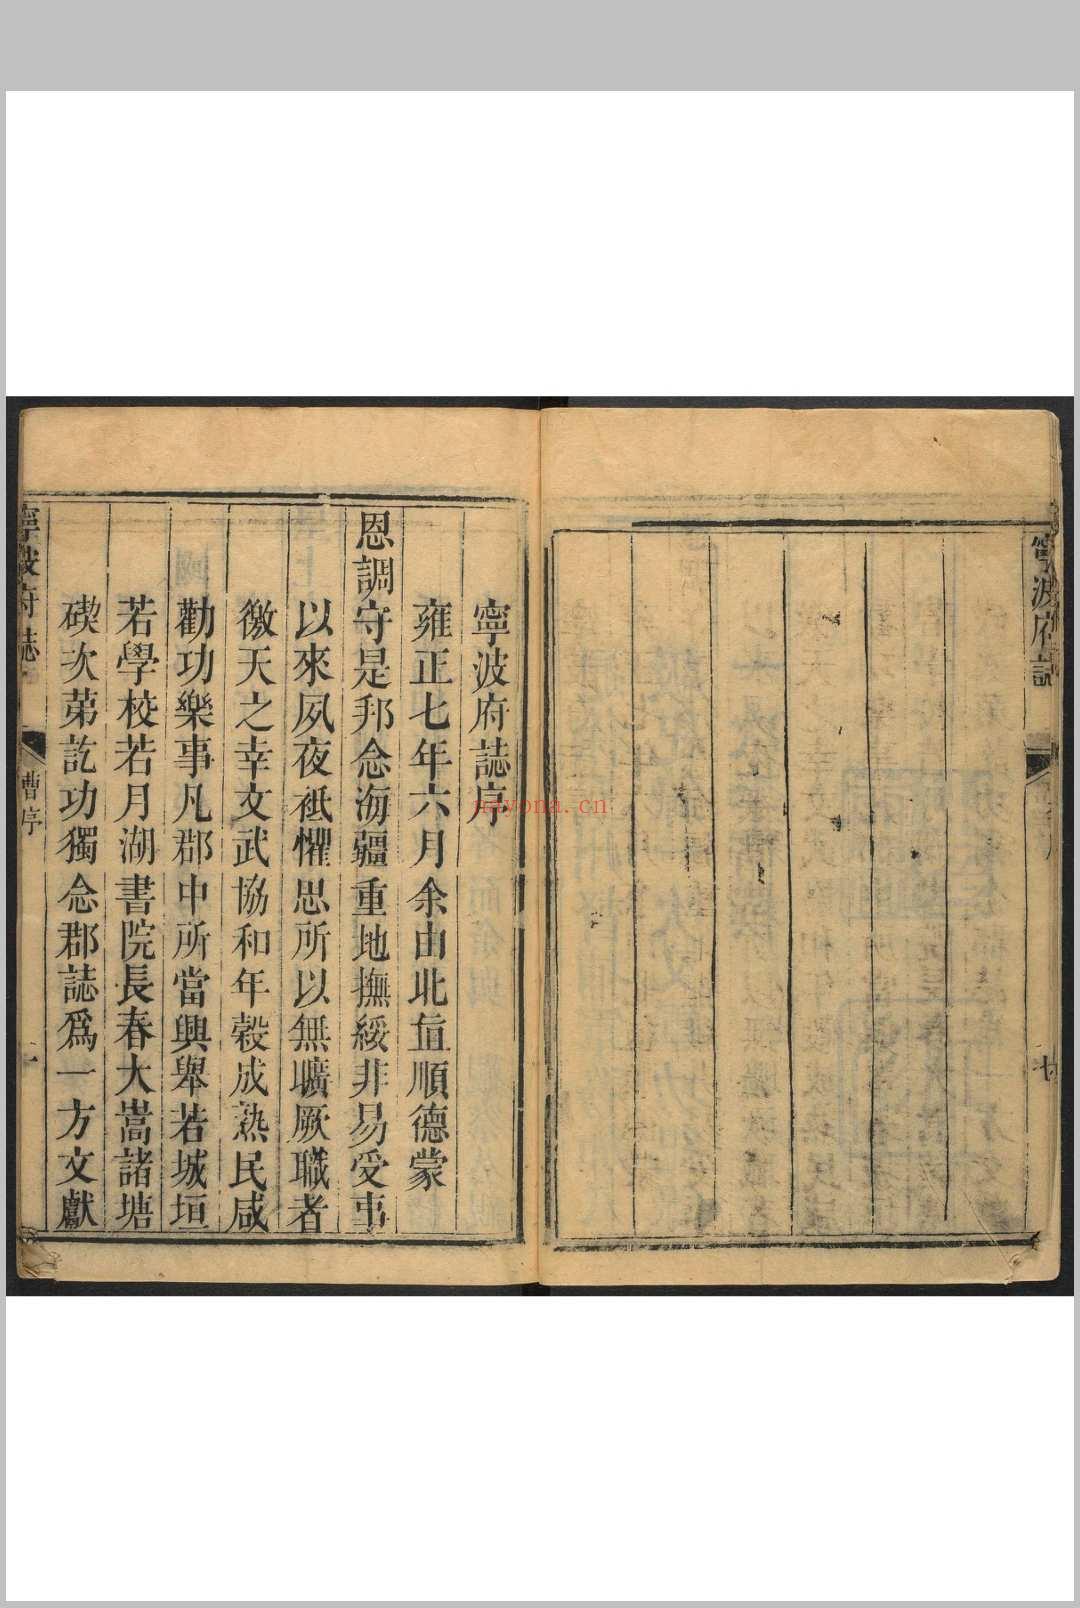 寧波府誌
七
寧波府誌序
雍正七年六月余由北直順德蒙
恩調守是邦念海疆重地撫綏非易受事
以來夙夜祗懼思所以無曠厥職者
徼天之幸文武協和年穀成熟民咸
勸功樂事凡郡中所當興舉若城垣
若學校若月湖書院長春大嵩諸塘
碶次苐訖功獨念郡誌爲一方文獻
寧波府誌
曹序
一
nayona.cn